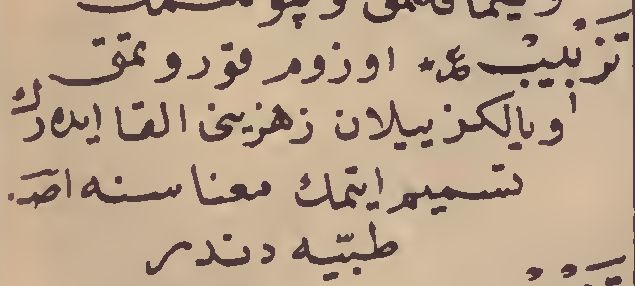 تزبيب اوزوم قوروتمق
و يالكز ييلان زهريني القا ايدهرك
تسميم ايتمك معناسنه اصـ.
طبيّه دندر